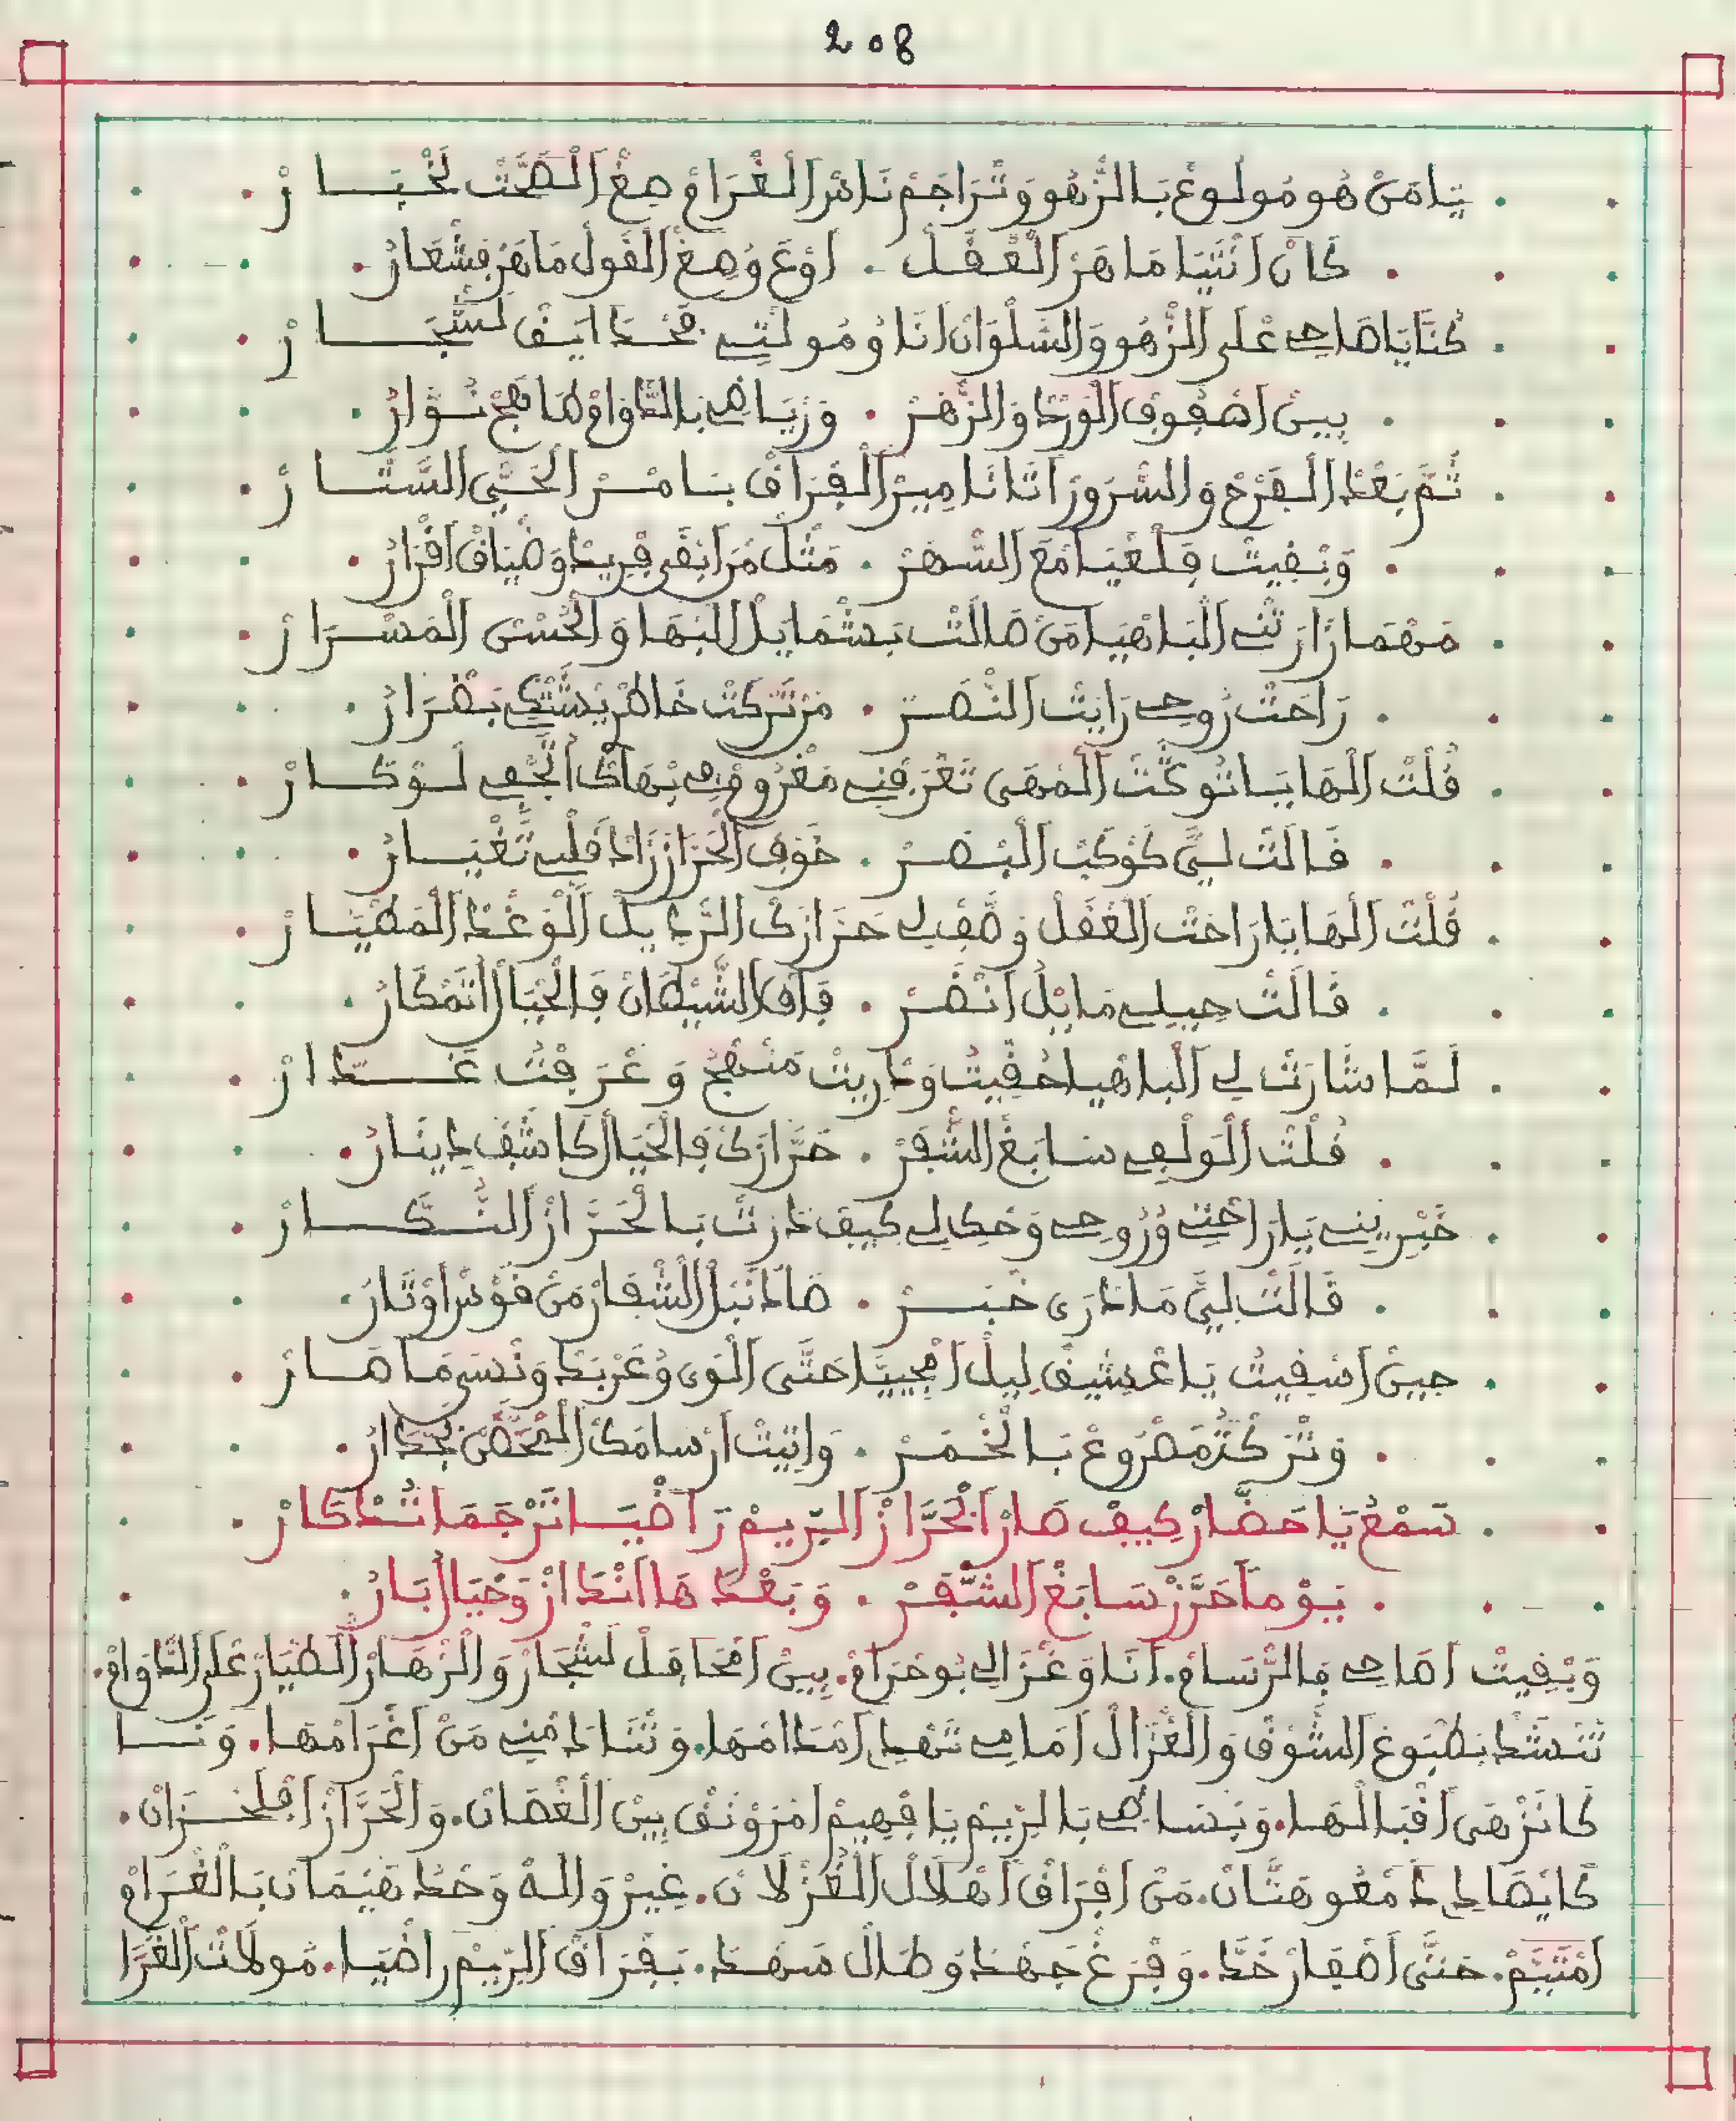 208
يَامَنْ هُو مُولُوعْ بَالزّْهُو وَتْرَاجَمْ نَاسْ الْغْرَامْ صِغْ الْصَحّْتْ لَخْبَـــارْ
كَانْ انْتَيَا مَاهَرْ الْعْقَلْ . اوْعَ وُصِغْ الْقُولْ مَاهَرْ فَشْعَارُ
كُنَّا يَاصَاحِي عْلَى الزّْهُو وَالسَّلْوَانْ انَا وُمُولَتِي فَحْدَايَقْ لَشْجَـــارْ
بِينْ اصْفُوفْ الْوَرْدْ وَالزّْهَرْ . وَرْيَاضِي بَالدّْوَامْ هَايَجْ نُوّارُ
ثَمَّ بَعْدْ الْفَرْحْ وَالسّْرُورْ اتَانَا مِيرْ الْفْرَاقْ يَامْـرْ الْحَيّْ السَّتَّـــارْ
وَبْقِيتْ فَلْغْيَامْعَ السّْهَرْ . مَثْلْ مَرْ ابْقَى فْرِيدْ وَضْيَاقْ اقْرَارُ
مَهْمَا زَارَتْنِي الْبَاهْيَا مَنْ صَالَتْ بَشْمَايَلْ الْبْهَا وَالْحُسْنْ الْمَسْرَارْ
رَاحَتْ رُوحِي رَايَتْ النّْصَرْ . مَرْ تَرْكَتْ خَاطْرْ يَشْتْكِي بَضْرَارُ
قُلْتْ الْهَا يَا تُوكَتْ الْمْهَى تَعْرَفْنِي مَغْرُومْ فِي بْهَاكْ الْجْفِي لَـوْكَـارْ
قَالَتْ لِيَّ كَوْكَبْ الْبْصَرْ . خَوْفْ الْحَرَّازْ زَادْ قَلْبِي تَغْيَـارُ
قُلْتْ الْهَا يَا رَاحَتْ الْعْقَلْ وَصْفِي لِي حَرَّازَكْ الرّْدِيلْ الْوَغْدْ الْمَطْيَـارْ
قَالَتْ حِيلِي مَايْلْ انْضَرْ . فَاقْ الشَّيْطَانْ فَالْحْيَالْ اتَمْكَارُ
لَمَّا شَارَتْ لِي الْبَاهْيَا حُقِّيتْ وَدْرِيتْ مَنْهَجُ وَعْرَفْتْ غَـــدَّارْ
قُلْتْ الْوَلْفِي سَابَغْ الشّْفَرْ . حَرَّازَكْ فَالْحْيَالْ كَاشَفْ دِينَارُ
خَبْرِينِي يَا رَاحْتِي وُرُوحِي وَحْكِي لِي كِيفْ دَرْتْ بَالْحَرَّازْ النَّـكَّـــارْ
قَالَتْ لِيَّ مَا دْرَى خْبَـرْ . صَادْ نَبْلْ الشّْفَارْ مَنْ قَوْسْ اوْتَارُ
حِينْ اسْقِيتُ يَا عْشِيقْ لِيلْ امْجِيَّا حَتَّى الْوَى وُعَرْبَدْ وَنْسَى مَا صَـارْ
وَتْرَكْتُ مَصْرُوعْ بَالْخْمَـرْ . وَاتِيتْ ارْسَامَكْ الْمْحَصَّنْ بَجْدَارُ
سَمْعْ يَا حَضَّارْ كِيفْ صَارْ الْحَرَّازْ الرِّيمْ رَاضْيَـا تَرْجَمَا تَدْكَارْ
يَـوْمْ احْرَزْ سَابَغْ الشّْفَرْ . وَبَعْدْ هَا انْدَازْ وَحْيَالْ ابَارُ
وَبْقِيتْ اصَاحِي فَالرّْسَامْ. انَا وَغْزَالِي بُوحْرَامْ. بِينْ امْحَافَلْ لَشْجَارْ وَالزْهَارْ الْطْيَارْ عْلَى الدّْوَامْ.
تَنْشَدْ بَطْبُوعْ الشُّوقْ وَالْغْزَالْ امَامِي تَنْهِلْ امْدَامْهَا. وَتْنَادَمْنِي مَنْ اغْرَامْهَا. وَنَـــا
كَانَزْهَى اقْبَالْهَا. وَيْسَاعِي بَالرِّيمْ يَا فْهِيمْ امْرَوْنَقْ بِينْ الْغْصَانْ. وَالْحَرَّازْ افْلَحْـزَانْ.
كَايْصَادِدْ دَمْعُ وهَتَّانْ. مَنْ افْرَاقْ اهْلَالْ الْغُزْلَانْ. غِيرْ وَالَهْ وَحْدُ هَيْمَانْ بَالْغْرَامْ
امْتَيَّمْ. حَتَّى اصْفَارْ خَدُّ. وَفْرَغْ جَهْدُ وَطَالْ سَهْدُ. بَفْرَاقْ الرِّيمْ رَاضْيَا. مُولَاتْ الْغُرَّا